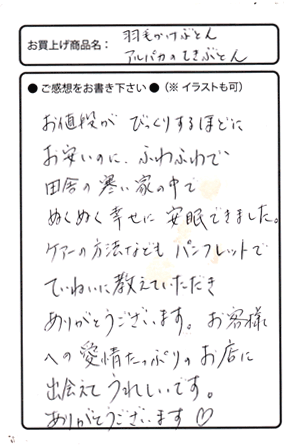 お買上げ商品名：羽毛かけぶとん
アルパカのしきぶとん
● ご感想をお書き下さい ●（※ イラストも可）
お値段が びっくりするほどに
お安いのに、ふわふわで
田舎の寒い家の中で
ぬくぬく幸せに 安眠できました。
ケアーの方法なども パンフレットで
ていねいに教えていただき
ありがとうございます。 お客様
への愛情たっぷりのお店に
出会えて うれしいです。
ありがとうございます♡